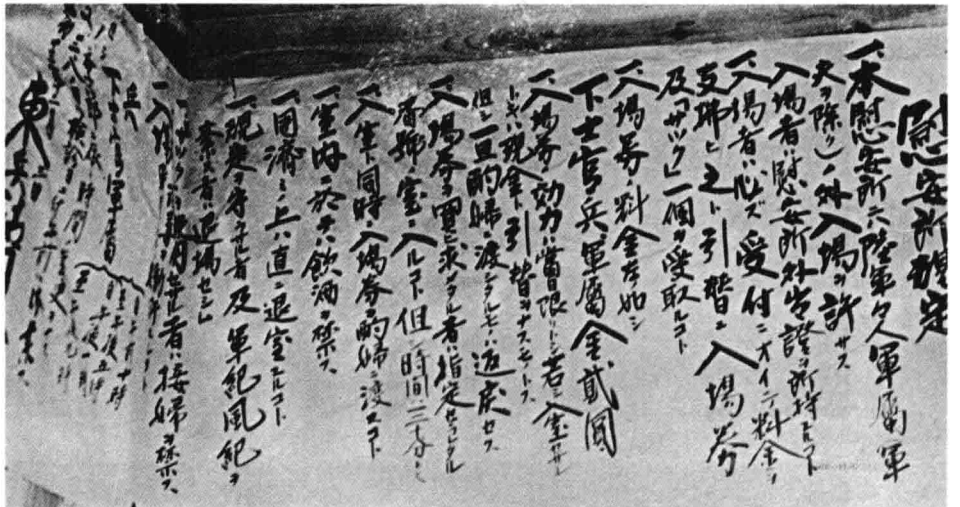 慰安所規定
一、本慰安所ニハ陸軍々人軍属(軍
夫ヲ除ク)ノ外入場ヲ許サス
入場者ハ慰安所外出證ヲ所持スルコト
一、入場者ハ必ズ受付ニオイテ料金ヲ
支拂ヒ之ト引替ニ入場券
及「サック」一個ヲ受取ルコト
一、入場券ノ料金左ノ如シ
下士官、兵、軍属金貳圓
一、入場券ノ効力ハ當日限リトシ若シ入室セサル
トキハ現金ト引替ヲナスモノトス
但シ一旦酌婦ニ渡シタルモノハ返戻セス
一、入場券ヲ買ヒ求メタル者ハ指定セラレタル
番號ノ室ニ入ルコト但シ時間ハ三十分トス
一、入室ト同時ニ入場券ヲ酌婦ニ渡スコト
一、室内ニ於テハ飲酒ヲ禁ス
一、用濟ミノ上ハ直ニ退室スルコト
一、規定ヲ守ラサル者及軍紀風紀ヲ
紊ス者ハ退場セシム
一、サックヲ使用セサル者ハ接婦ヲ禁ス
一、入場
兵
下士官軍属
東兵站